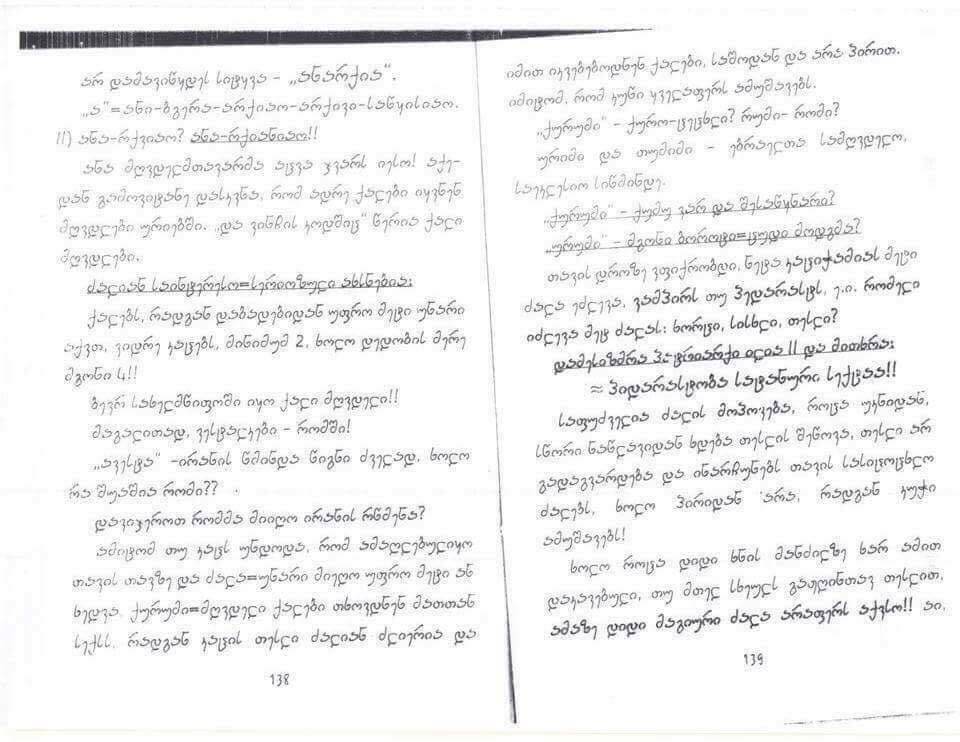 არ დამავიწყდეს სიტყვა - „ანარქია“.
„ა“=ანი-ბგერა-არქიაო-არქივი-საწყისიაო.
II) ანა-რქვიაო? ანა-რქიანიაო!!
ანა მღვდელმთავარმა აცვა ჯვარს იესო! აქე-
დან გამოვიტანე დასკვნა, რომ ადრე ქალები იყვნენ
მღვდლები ურიებში. „და ვინჩის კოდშიც“ წერია ქალი
მღვდლები.
ძალიან საინტერესო=სერიოზული ახსნებია:
ქალებს, რადგან დაბადებიდან უფრო მეტი უნარი
აქვთ, ვიდრე კაცებს, მინიმუმ 2, ხოლო დედობის მერე
მგონი 4!!
ბევრ სახელმწიფოში იყო ქალი მღვდელი!!
მაგალითად, ვესტალკები - რომში!
„ავესტა“ -ირანის წმინდა წიგნი ძველად, ხოლო
რა შუაშია რომი??
დავიჯეროთ რომმა მიიღო ირანის რწმენა?
ამიტომ თუ კაცს უნდოდა, რომ ამაღლებულიყო
თავის თავზე და ძალა=უნარი მიეღო უფრო მეტი ან
ხედვა, ქურუმი=მღვდელი ქალები თხოვდნენ მათთან
სექსს, რადგან კაცის თესლი ძალიან ძლიერია და
138
იმით იკვებებოდნენ ქალები, საშოდან და არა პირით.
იმიტომ, რომ კუჭი ყველაფერს ამუშავებს.
„ქურუმი“ - ქურო-ცეცხლი? რუმი- რომი?
ურიმი და თუმიმი - ებრაელთა სამღვდელო,
საეკლესიო სიწმინდე.
„ქურუმი“ - ქუმუ ვარ და შესაწყნარი?
„ურუმი“ - მგონი ბოროტი=ცუდი მოდგმა?
თავის დროზე ვფიქრობდი, ნეტა კაციჭამიას მეტი
ძალა ეძლევა, ვამპირს თუ პედარასტს, ე.ი. რომელი
იძლევა მეტ ძალას: ხორცი, სისხლი, თესლი?
დამესიზმრა პატრიარქი ილია II და მითხრა:
≈ პიდარასტობა სატანური, სექტაა!!
საფუძველია ძალის მოპოვება, როცა უკნიდან,
სწორი ნაწლავიდან ხდება თესლის შეწოვა, თესლი არ
გადაგვარდება და ინარჩუნებს თავის სასიცოცხლო
ძალებს, ხოლო პირიდან არა, რადგან კუჭი
ამუშავებს!
ხოლო როცა დიდი ხნის მანძილზე ხარ ამით
დაკავებული, თუ მთელ სხეულს გაჟღინთავ თესლით,
ამაზე დიდი მაგიური ძალა არაფერს აქვსო!! აი,
139